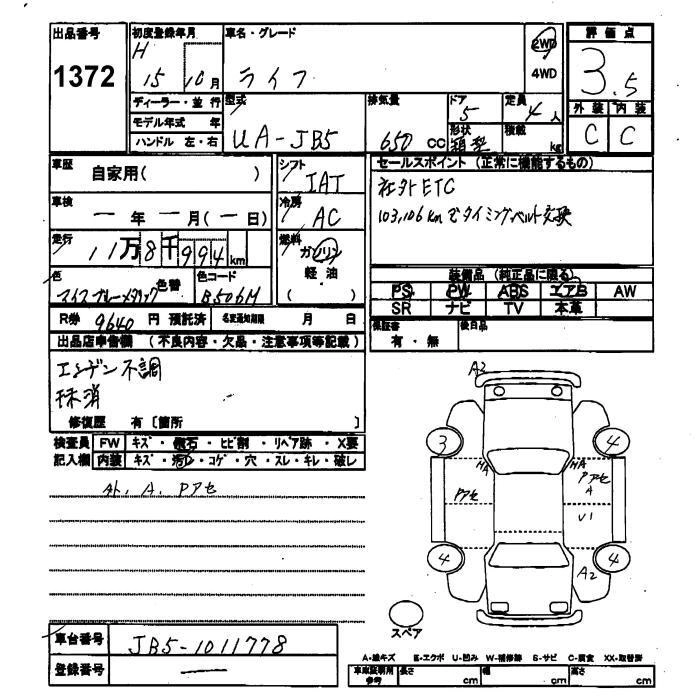 出品番号 初度登録年月 車名・グレード 2WD 評価点
1372 H 15 10月 ライフ 4WD 3.5
ディーラー・並行 型式 排気量 ドア 定員 外装 内装
モデル年式 年 UA-JB5 650 cc 5 4人 C C
ハンドル 左・右 形状 箱型 積載 kg
車歴 自家用( ) シフト IAT セールスポイント (正常に機能するもの)
車検 ー年ー月(ー日) 冷房 AC 社外ETC
走行 11万8千994km 燃料 ガソリン 103,106kmでタイミングベルト交換
軽油
( )
色 色替 色コード 装備品 (純正品に限る)
B506M PS PW ABS エアB AW
SR ナビ TV 本革
R券 9640円 預託済 名変通知期限 月 日 保証書 有・無 後日品
出品店申告欄 (不良内容・欠品・注意事項等記載)
エンジン不調
抹消
修復歴 有 [箇所 ]
検査員 FW キズ・飛石・ヒビ割・リペア跡・X要
記入欄 内装 キズ・汚レ・コゲ・穴・スレ・キレ・破レ
外、A、Pアセ
A2
3 4
HA HA
Pアセ Pアセ
A
U1
4 4
A2
スペア
車台番号 JB5-1011778
登録番号 ー
A-線キズ E-エクボ U-凹み W-補修跡 S-サビ C-腐食 XX-取替済
車庫証明用参考 長さ cm 幅 cm 高さ cm